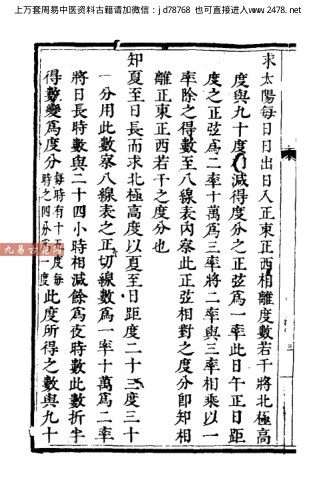 上万套周易中医资料古籍请加微信：jd78768 也可直接进入www.2478.net
求太陽每日日出日入正東正西相離度數若干將北極高
度與九十度減得度分之正弦爲一率此日午正日距
度之正弦爲二率十萬爲三率將二率與三率相乘以一
率除之得數至八線表內察此正弦相對之度分卽知相
離正東正西若干之度分也
知夏至日長而求北極高度以夏至日距度二十三度三十
一分用此數察八線表之正切線數爲一率十萬爲二率
將日長時數與二十四小時相減餘爲夜時數此數折半
得數變爲度分每時有十五度每時之四分爲一度此度所得之數與九十